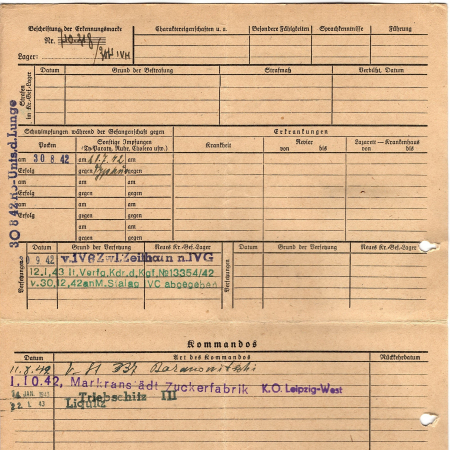 Beschriftung der Erkennungsmarke
Nr.
Lager: IVH
Charaktereigenschaften u. a.
Besondere Fähigkeiten
Sprachkenntnisse
Führung
Strafen im Kr.-Gef.-Lager
Datum
Grund der Bestrafung
Strafmaß
Verbüßt, Datum
30 8 42 Lunge
Schutzimpfungen während der Gefangenschaft gegen
Erkrankungen
Pocken
Sonstige Impfungen
(Ty-Paraty, Ruhr, Cholera usw.)
Krankheit
Revier
von bis
Lazarett-Krankenhaus
von bis
am 30 8 42
am
am
Erfolg
gegen
gegen
am
am
am
Erfolg
gegen
gegen
am
am
am
Erfolg
gegen
gegen
am
am
am
Erfolg
gegen
gegen
Versetzungen
Datum
Grund der Versetzung
Neues Kr.-Gef.-Lager
Versetzungen
Datum
Grund der Versetzung
Neues Kr.-Gef.-Lager
9 42 v.IVB Zeithain n.IVG
12.1.43 lt.Verfg.Kdr.d.Kgf.№13354/42
v.30.12.42 an M.Stalag IVC abgegeben
Kommandos
Datum
Art des Kommandos
Rückkehrdatum
1.10.42, Markranstädt Zuckerfabrik K.O. Leipzig-West
JAN. 1943 Triebschitz III
22. 1. 43